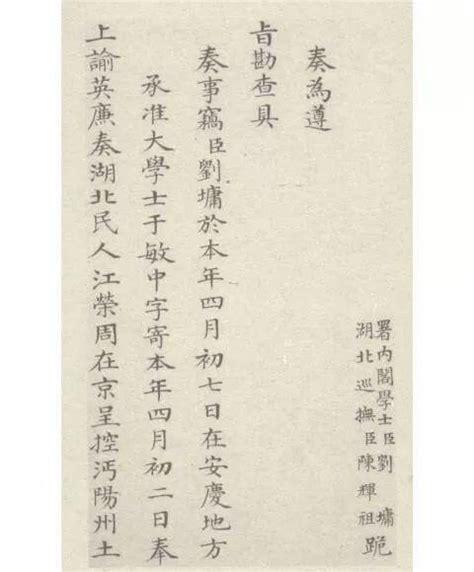 署内閣學士臣劉墉
湖北巡撫臣陳輝祖跪
奏為遵
旨勘查具
奏事竊臣劉墉於本年四月初七日在安慶地方
承准大學士于敏中字寄本年四月初二日奉
上諭英廉奏湖北民人江榮周在京呈控沔陽州土